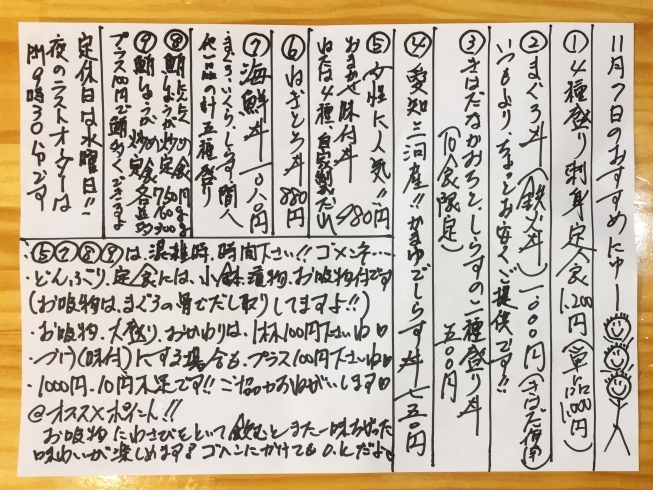 11月7日のおすすめにゅー
① 4種盛り刺身定食 1,200円(単品 1,000円)
② まぐろ丼(鉄火丼)1000円(きはだ使用)
いつもより、ちょっとお安くご提供です!!
③ きはだなかおちと、しらすの二種盛り丼
(10食限定) 五〇〇円
④ 愛知三河産!! かまゆでしらす丼 七五〇円
⑤ 女性に人気!!
おまかせ味付丼 980円
ねたは4種 自家製だれ
⑥ ねぎとろ丼 880円
⑦ 海鮮丼 1080円
まぐろ、いくら、しらす、
他二品の計五種盛り
⑧
⑨
プラス100円で
定休日は水曜日!!
夜のラストオーダーは
PM9時30分です
⑤⑦⑧⑨は、混雑時、時間下さい!! ゴメンネ…
・どんぶり、定食には、小鉢、漬物、お吸物付です
(お吸物は、まぐろの骨でだし取りしてますよ!!)
・お吸物、大盛り、おかわりは、1杯100円下さいね
・づけ(味付)にする場合も、プラス100円下さいね
・1000円、10円不足です!! ご協力おねがいします
@オススメポイント!!
お吸物にわさびをといて飲むとまた一味ちがった
味わいが楽しめます ゴハンにかけてもO.Kだよ